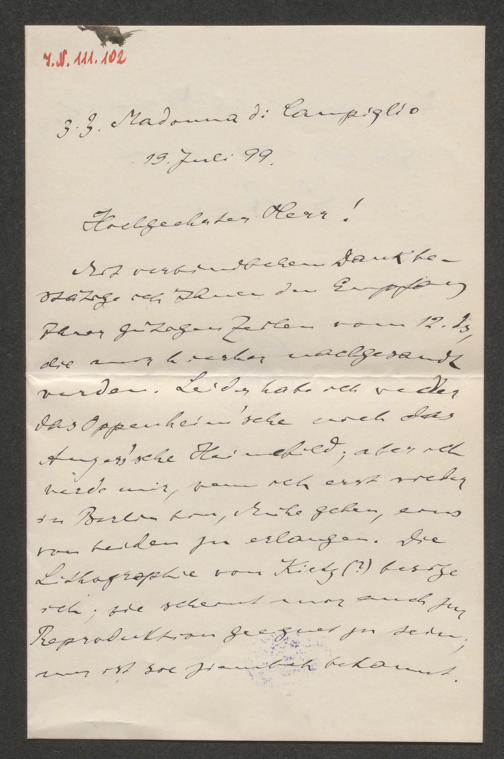 J.N. 111.102
z. Z. Madonna di Campiglio
19. Juli 99.
Hochgeehrter Herr!
Mit verbindlichem Dank be-
stätige ich Ihnen den Empfang
Ihrer gütigen Zeilen vom 12. ds,
die mir hierher nachgesandt
wurden. Leider habe ich weder
das Oppenheim'sche noch das
Anger'sche Heinebild; aber ich
werde mir, wenn ich erst wieder
in Berlin bin, Mühe geben, eins
von beiden zu erlangen. Die
Lithographie von Kietz (?) besitze
ich; sie scheint mir auch zur
Reproduktion geeignet zu sein;
nur ist sie ziemlich bekannt.